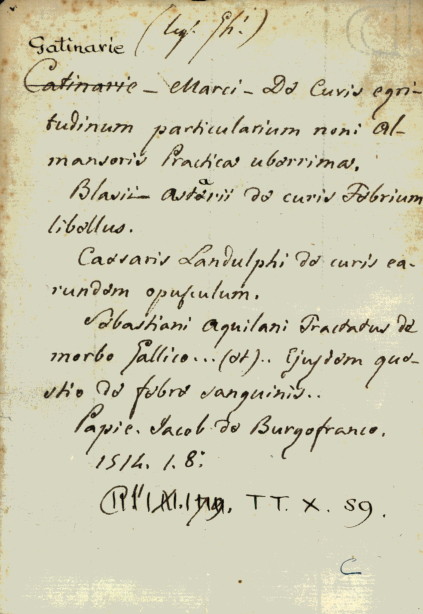 (lug. Gh.)
Gatinarie
Catinarie - Marci - De Curis egri-
tudinum particularium noni Al-
mansoris Practica uberrima.
Blasii - Astarii de curis Febrium
libellus.
Caesaris Landulphi de curis ea-
rundem opusculum.
Sebastiani Aquilani Tractatus de
morbo Gallico... (et).. Ejusdem que-
stio de febre sanguinis..
Papie. Jacob de Burgofranco.
1514. 1. 8.
TT. X. 59.
C